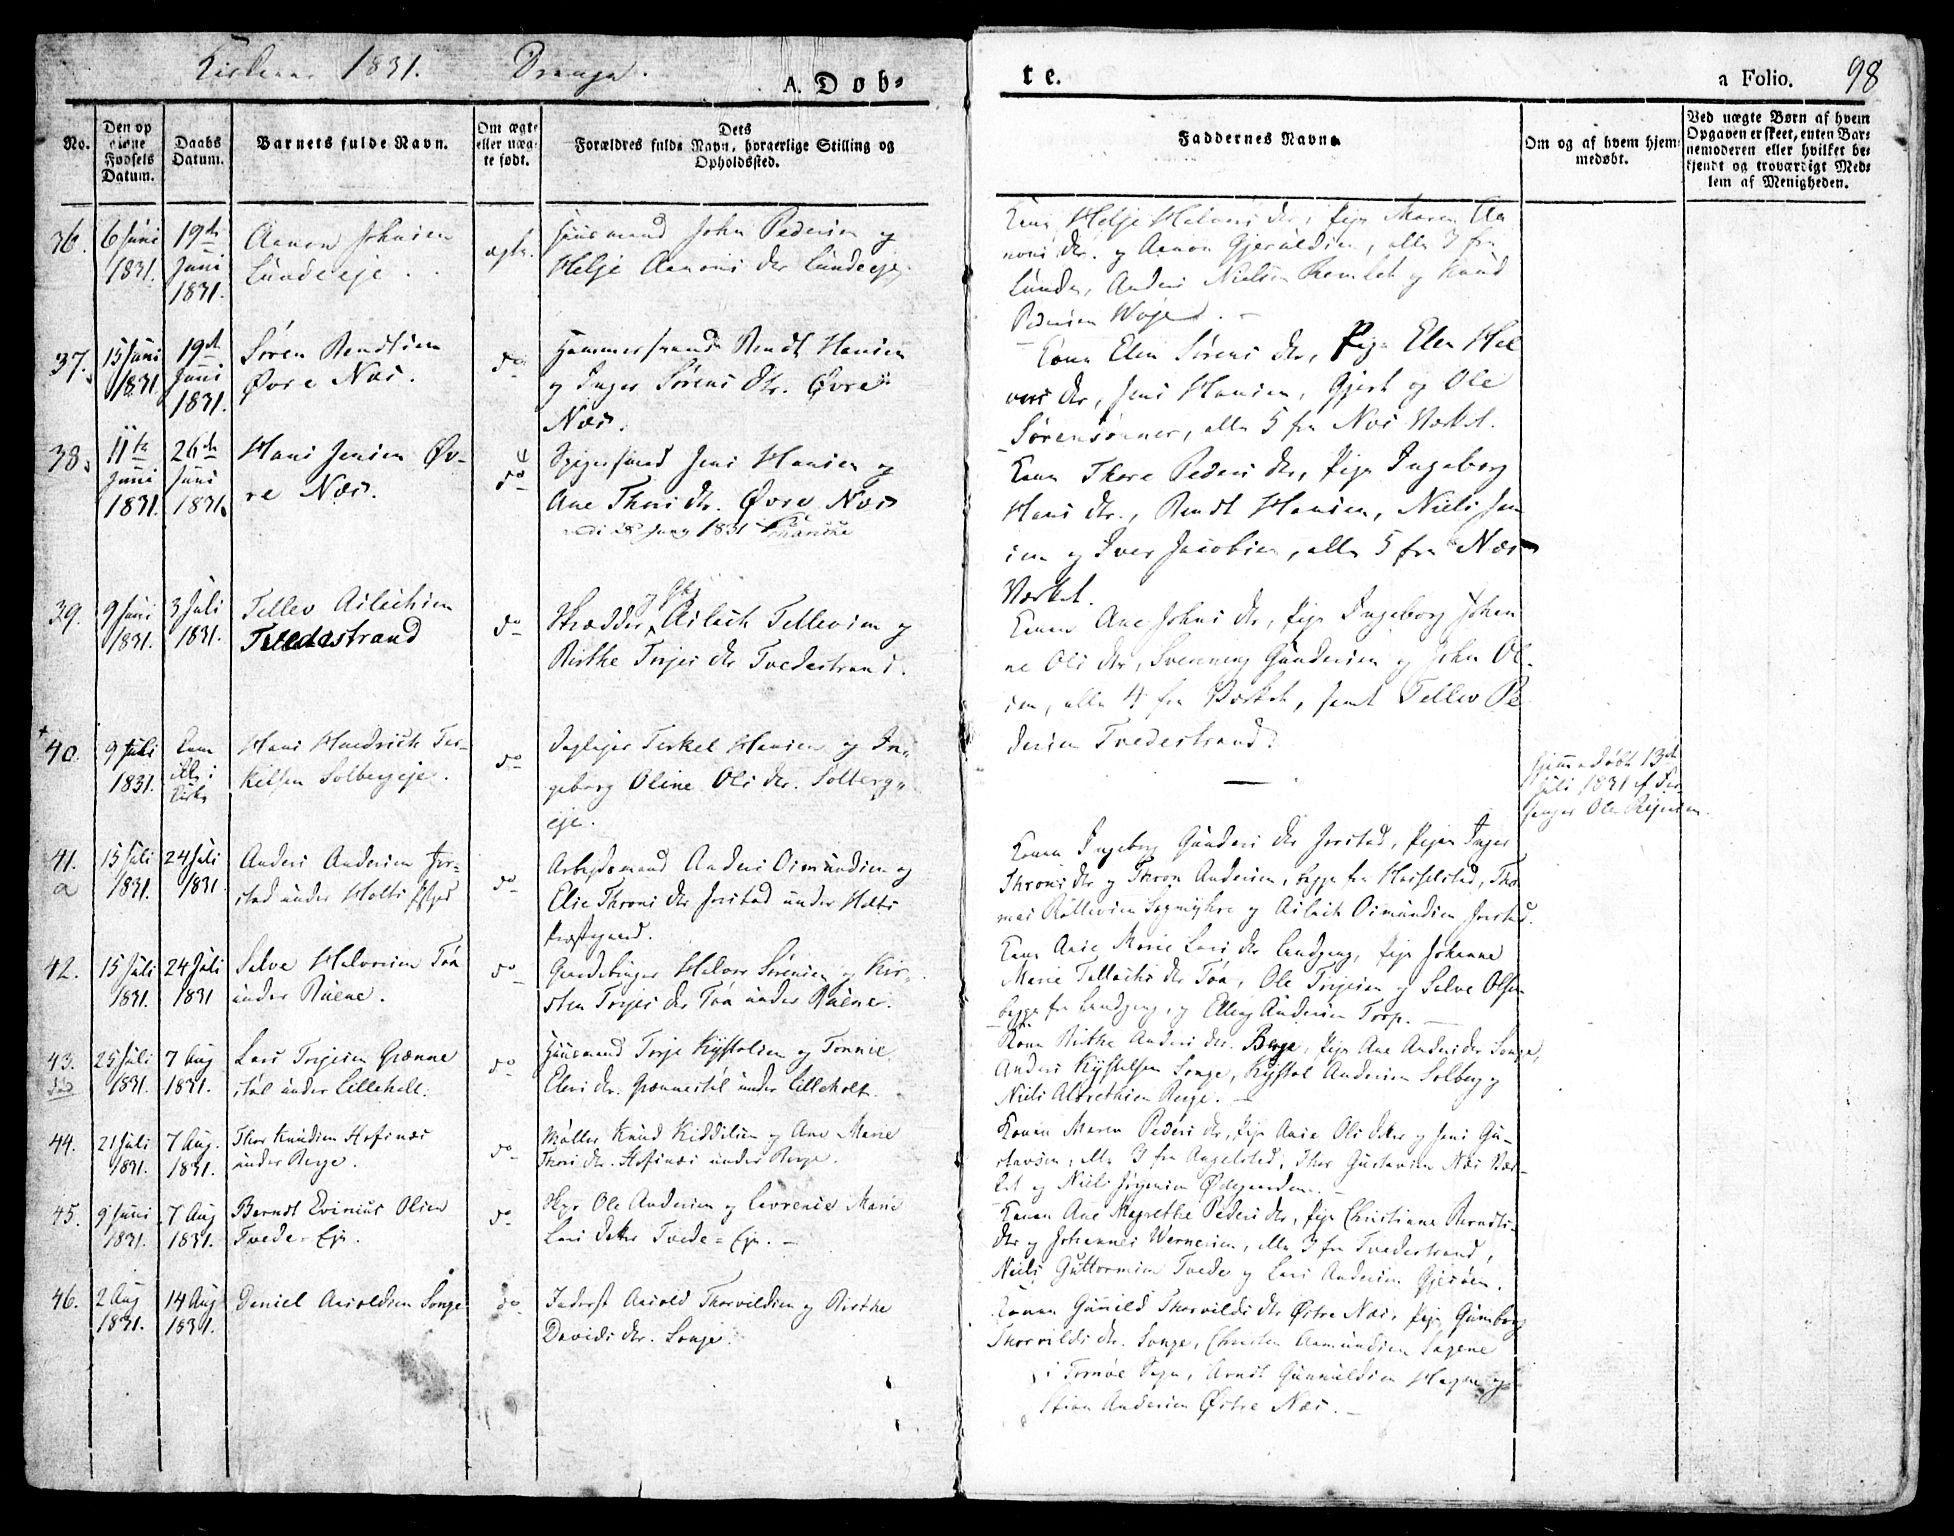 1831. Drenge.
A. Døb-
te.
a Folio. 98
No.
Den op
Fødsels
Datum.
Daabs
Datum.
Barnets fulde Navn.
Om ægte
eller uæg-
te født.
Dets
Forældres fulde Navn, borgerlige Stilling og
Opholdssted.
Faddernes Navne
Om og af hvem hjem-
medøbt.
Ved uægte Børn af hvem
Opgaven er skeet, enten Bar-
nemoderen eller hvilket be-
kjendt og troværdigt Med-
lem af Menigheden.
36. 6 Juni
1831.
19de
Juni
1831.
Aanon Johnsen
Lundeeje.
ægte.
Huusmand John Pedersen og
Helje Aanons dtr Lundeeje.
Kone Helje Halvors dtr, Pige Maren Aa
nons dtr. og Aanon Gjeruldsen, alle 3 fra
Lunde, Anders Nielsen og Knud
Pedersen
37. 15 Juni
1831.
19de
Juni
1831.
Søren Bendtsen
Øvre Næs.
do
Hammersmed Bendt Hansen
og Inger Sørens dtr. Øvre
Næs.
Kone Elen Sørens dtr, Pige Elen Hal
vors dtr, Jens Hansen, Gjert og Ole
Sørensønner, alle 5 fra Næs Værket.
38. 11te
Juni
1831.
26de
Juni
1831.
Hans Jensen Øv-
re Næs.
do
Spigersmed Jens Hansen og
Ane Thors dtr. Øvre Næs
1831
Kone Thore Peders dtr, Pige Ingeborg
Hans dtr., Bendt Hansen, Niels Jen
sen og Iver Jacobsen, alle 5 fra Næs
Værket.
39. 9 Juni
1831.
3 Juli
1831.
Tellev Ailichsen
Tvedestrand
do
Skrædder Ailich Tellevsen og
Birthe Terjes dtr Tvedestrand.
Konen Ane Johns dtr, Pige Ingeborg Johan
ne Ols dtr, Svenning Gundersen og John Ol-
sen, alle 4 fra Værket, samt Tellev Pe
dersen Tvedestrand.
40. 9 Juli
1831.
Kom
ikke i
Kirke
Hans Hendrich Ter-
kelsen Solbergeje.
do
Daglejer Terkel Hansen og In-
geborg Oline Ols dtr. Solberg-
eje.
Hjemmedøbt 13de
Juli 1831 af
Ole
41.
a
15 Juli
1831.
24 Juli
1831.
Anders Andersen Jor-
stad under Holts
do
Arbejdsmand Anders Osmundsen og
Elie Throns dtr Jorstad under Holts
Præstegaard.
Konen Ingeborg Gunders dtr Jorstad, Pigen Inger
Throns dtr og Thron Andersen, begge fra Hasselstad, Tho
mas Rollevsen og Ailich Osmundsen Jorstad.
42. 15 Juli
1831.
24 Juli
1831
Salve Halvorsen Tøa
under
do
Halvor Sørensen og Kir-
sten Terjes dtr Tøa under
Kone Anne Marie Lars dtr Landgang, Pige Johanne
Marie Tallachs dtr Tøa, Ole Terjesen og Salve Olsen
begge fra Landgang, og Elling Andersen Torp.
43.
død
25 Juli
1831.
7 Aug
1831.
Lars Terjesen Grønne
støl under Lilleholt.
do
Huusmand Terje Kystolsen og Tonnie
Elens dtr. Grønnestøl under Lilleholt.
Kone Birthe Anders dtr. Berge, Pige Ane Anders dtr Songe,
Anders Kystelsen Songe, Kystol Andersen Solberg og
Niels Albrethsen Berge.
44. 21 Juli
1831.
7 Aug.
1831.
Thor Knudsen Hofsnæs
under Berge.
do
Møller Knud Kiddelsen og Ane Marie
Thors dtr. Hofsnæs under Berge.
Konen Maren Peders dtr, Pige Anne Ols dtr og Jens Gu-
stavsen, alle 3 fra Angelsted, Thor Gustavsen Næs Vær-
ket og Niels Jørgensen Ødegaarden.
45. 9 Juni
1831.
7 Aug
1831.
Berndt Evinius Olsen
Tvede-Eje.
do
Ole Andersen og Lavrense Marie
Lars dtr Tvede-Eje.
Konen Ane Magrethe Peders dtr, Pige Christiane Berndts-
dtr og Johannes Wernersen, alle 3 fra Tvedestrand,
Niels Guttormsen Tvede og Lars Andersen Gjersøen.
46. 2 Aug
1831.
14 Aug
1831.
Daniel Aasoldsen Songe
do
Inderst Aasold Thorvildsen og Birthe
Davids dtr. Songe.
Konen Gunild Thorvilds dtr Østre Næs, Pige Gunborg
Thorvilds dtr. Songe, Christen Aamundsen Sagene
i Tromøe Sogn, Arndt Gunnuldsen
Stian Andersen Østre Næs.